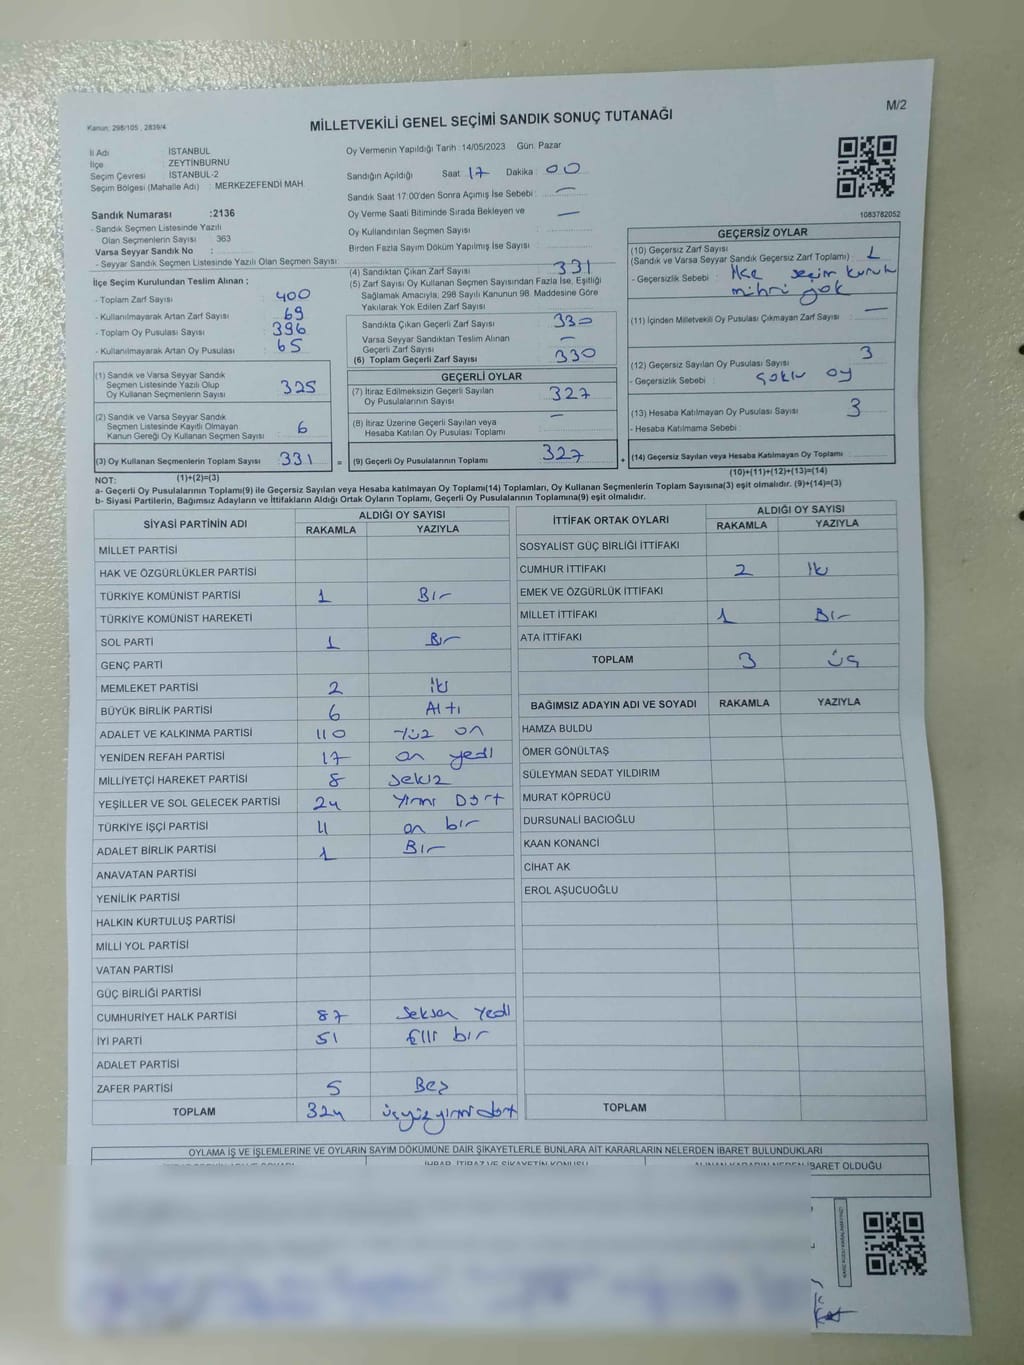 Kanun: 298/105 , 2839/4
MİLLETVEKİLİ GENEL SEÇİMİ SANDIK SONUÇ TUTANAĞI
M/2
İl Adı : İSTANBUL
İlçe : ZEYTİNBURNU
Seçim Çevresi : İSTANBUL-2
Seçim Bölgesi (Mahalle Adı) : MERKEZEFENDİ MAH.
Sandık Numarası :2136
- Sandık Seçmen Listesinde Yazılı
Olan Seçmenlerin Sayısı 363
Varsa Seyyar Sandık No :
- Seyyar Sandık Seçmen Listesinde Yazılı Olan Seçmen Sayısı:
Oy Vermenin Yapıldığı Tarih : 14/05/2023 Gün: Pazar
Sandığın Açıldığı Saat 17 Dakika : 00
Sandık Saat 17:00'den Sonra Açımış İse Sebebi : —
Oy Verme Saati Bitiminde Sırada Bekleyen ve —
Oy Kullandırılan Seçmen Sayısı :
Birden Fazla Sayım Döküm Yapılmış İse Sayısı :
1083782052
İlçe Seçim Kurulundan Teslim Alınan :
- Toplam Zarf Sayısı : 400
- Kullanılmayarak Artan Zarf Sayısı : 69
- Toplam Oy Pusulası Sayısı : 396
- Kullanılmayarak Artan Oy Pusulası : 65
(1) Sandık ve Varsa Seyyar Sandık
Seçmen Listesinde Yazılı Olup
Oy Kullanan Seçmenlerin Sayısı 325
(2) Sandık ve Varsa Seyyar Sandık
Seçmen Listesinde Kayıtlı Olmayan
Kanun Gereği Oy Kullanan Seçmen Sayısı 6
(3) Oy Kullanan Seçmenlerin Toplam Sayısı 331 =
(4) Sandıktan Çıkan Zarf Sayısı 331
(5) Zarf Sayısı Oy Kullanan Seçmen Sayısından Fazla İse, Eşitliği
Sağlamak Amacıyla; 298 Sayılı Kanunun 98. Maddesine Göre
Yakılarak Yok Edilen Zarf Sayısı
Sandıkta Çıkan Geçerli Zarf Sayısı 330
Varsa Seyyar Sandıktan Teslim Alınan
Geçerli Zarf Sayısı —
(6) Toplam Geçerli Zarf Sayısı 330
GEÇERLİ OYLAR
(7) İtiraz Edilmeksizin Geçerli Sayılan
Oy Pusulalarının Sayısı 327
(8) İtiraz Üzerine Geçerli Sayılan veya —
Hesaba Katılan Oy Pusulası Toplamı
(9) Geçerli Oy Pusulalarının Toplamı 327 +
GEÇERSİZ OYLAR
(10) Geçersiz Zarf Sayısı
(Sandık ve Varsa Seyyar Sandık Geçersiz Zarf Toplamı) : 1
- Geçersizlik Sebebi : İlçe seçim kurulu
mührü yok
(11) İçinden Milletvekili Oy Pusulası Çıkmayan Zarf Sayısı : —
(12) Geçersiz Sayılan Oy Pusulası Sayısı 3
- Geçersizlik Sebebi : çoklu oy
(13) Hesaba Katılmayan Oy Pusulası Sayısı 3
- Hesaba Katılmama Sebebi :
(14) Geçersiz Sayılan veya Hesaba Katılmayan Oy Toplamı
NOT: (1)+(2)=(3)
(10)+(11)+(12)+(13)=(14)
a- Geçerli Oy Pusulalarının Toplamı(9) ile Geçersiz Sayılan veya Hesaba katılmayan Oy Toplamı(14) Toplamları, Oy Kullanan Seçmenlerin Toplam Sayısına(3) eşit olmalıdır. (9)+(14)=(3)
b- Siyasi Partilerin, Bağımsız Adayların ve İttifakların Aldığı Ortak Oyların Toplamı, Geçerli Oy Pusulalarının Toplamına(9) eşit olmalıdır.
SİYASİ PARTİNİN ADI ALDIĞI OY SAYISI
RAKAMLA YAZIYLA
MİLLET PARTİSİ
HAK VE ÖZGÜRLÜKLER PARTİSİ
TÜRKİYE KOMÜNİST PARTİSİ 1 Bir
TÜRKİYE KOMÜNİST HAREKETİ
SOL PARTİ 1 Bir
GENÇ PARTİ
MEMLEKET PARTİSİ 2 iki
BÜYÜK BİRLİK PARTİSİ 6 Altı
ADALET VE KALKINMA PARTİSİ 110 Yüz on
YENİDEN REFAH PARTİSİ 17 on yedi
MİLLİYETÇİ HAREKET PARTİSİ 8 sekiz
YEŞİLLER VE SOL GELECEK PARTİSİ 24 Yirmi Dört
TÜRKİYE İŞÇİ PARTİSİ 11 on bir
ADALET BİRLİK PARTİSİ 1 Bir
ANAVATAN PARTİSİ
YENİLİK PARTİSİ
HALKIN KURTULUŞ PARTİSİ
MİLLİ YOL PARTİSİ
VATAN PARTİSİ
GÜÇ BİRLİĞİ PARTİSİ
CUMHURİYET HALK PARTİSİ 87 Seksen Yedi
İYİ PARTİ 51 Elli bir
ADALET PARTİSİ
ZAFER PARTİSİ 5 Beş
TOPLAM 324 üçyüzyirmi dört
İTTİFAK ORTAK OYLARI ALDIĞI OY SAYISI
RAKAMLA YAZIYLA
SOSYALİST GÜÇ BİRLİĞİ İTTİFAKI
CUMHUR İTTİFAKI 2 iki
EMEK VE ÖZGÜRLÜK İTTİFAKI
MİLLET İTTİFAKI 1 Bir
ATA İTTİFAKI
TOPLAM 3 üç
BAĞIMSIZ ADAYIN ADI VE SOYADI RAKAMLA YAZIYLA
HAMZA BULDU
ÖMER GÖNÜLTAŞ
SÜLEYMAN SEDAT YILDIRIM
MURAT KÖPRÜCÜ
DURSUNALİ BACIOĞLU
KAAN KONANCİ
CİHAT AK
EROL AŞUCUOĞLU
TOPLAM
OYLAMA İŞ VE İŞLEMLERİNE VE OYLARIN SAYIM DÖKÜMÜNE DAİR ŞİKAYETLERLE BUNLARA AİT KARARLARIN NELERDEN İBARET BULUNDUKLARI
İHBAR, İTİRAZ VE ŞİKAYETİN KONUSU ALINAN KARARIN NEDEN İBARET OLDUĞU